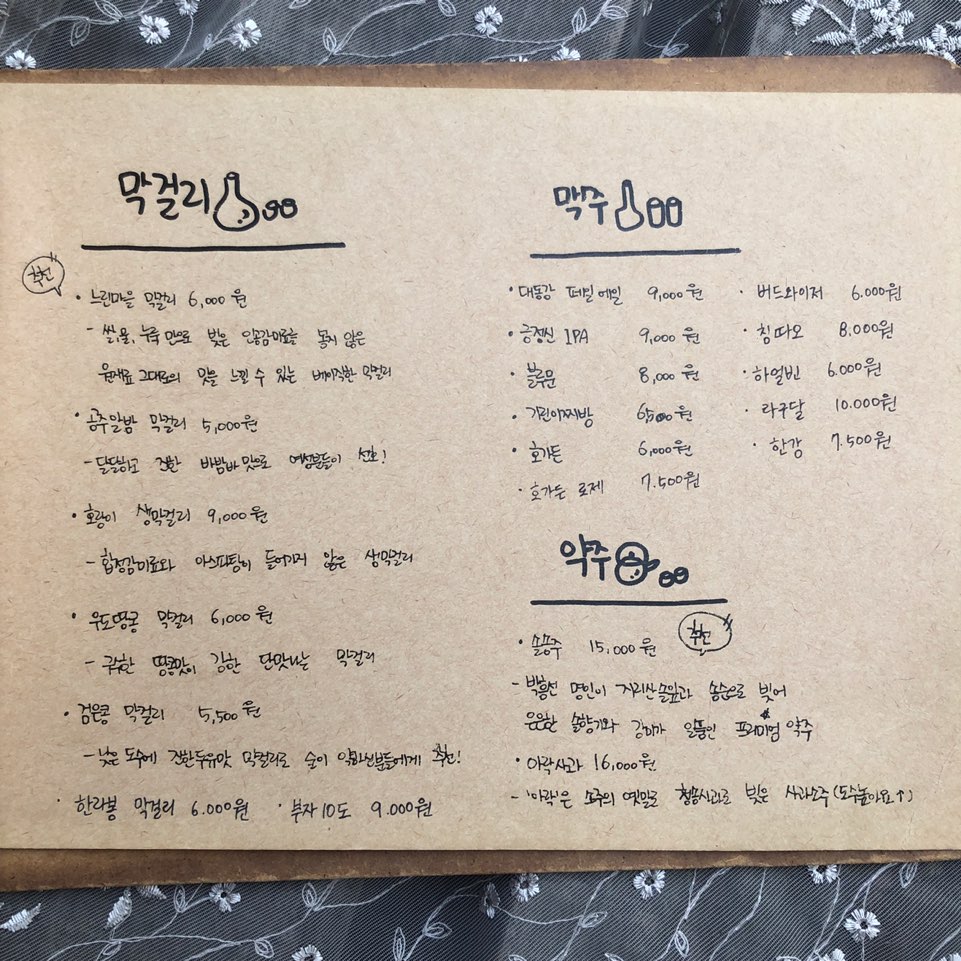 막걸리
추천
· 느린마을 막걸리 6,000원
- 쌀, 물, 누룩만으로 빚은 인공감미료를 넣지 않은
원재료 그대로의 맛을 느낄 수 있는 베이직한 막걸리
· 공주알밤 막걸리 5,000원
- 달달하고 진한 바밤바맛으로 여성분들이 선호!
· 호랑이 생막걸리 9,000원
- 합성감미료와 아스파탐이 들어가지 않은 생막걸리
· 우도땅콩 막걸리 6,000원
- 구수한 땅콩맛이 강한 단맛나는 막걸리
· 검은콩 막걸리 5,500원
- 낮은 도수에 진한두유맛 막걸리로 술이 약하신분들에게 추천!
· 한라봉 막걸리 6.000원 · 부자10도 9.000원
맥주
· 대동강 페일에일 9,000원
· 긍정신 IPA 9,000원
· 블루문 8,000원
· 기린이찌방 6,500원
· 호가든 6,000원
· 호가든 로제 7.500원
· 버드와이저 6.000원
· 칭따오 8.000원
· 하얼빈 6.000원
· 라구달 10.000원
· 한강 7.500원
약주
· 솔송주 15,000원 추천
- 박흥선 명인이 지리산솔잎과 송순으로 빚어
은은한 솔향기와 감미가 일품인 프리미엄 약주
· 아락사과 16,000원
- '아락'은 소주의 옛말로 청송사과로 빚은 사과소주 (도수높아요↑)